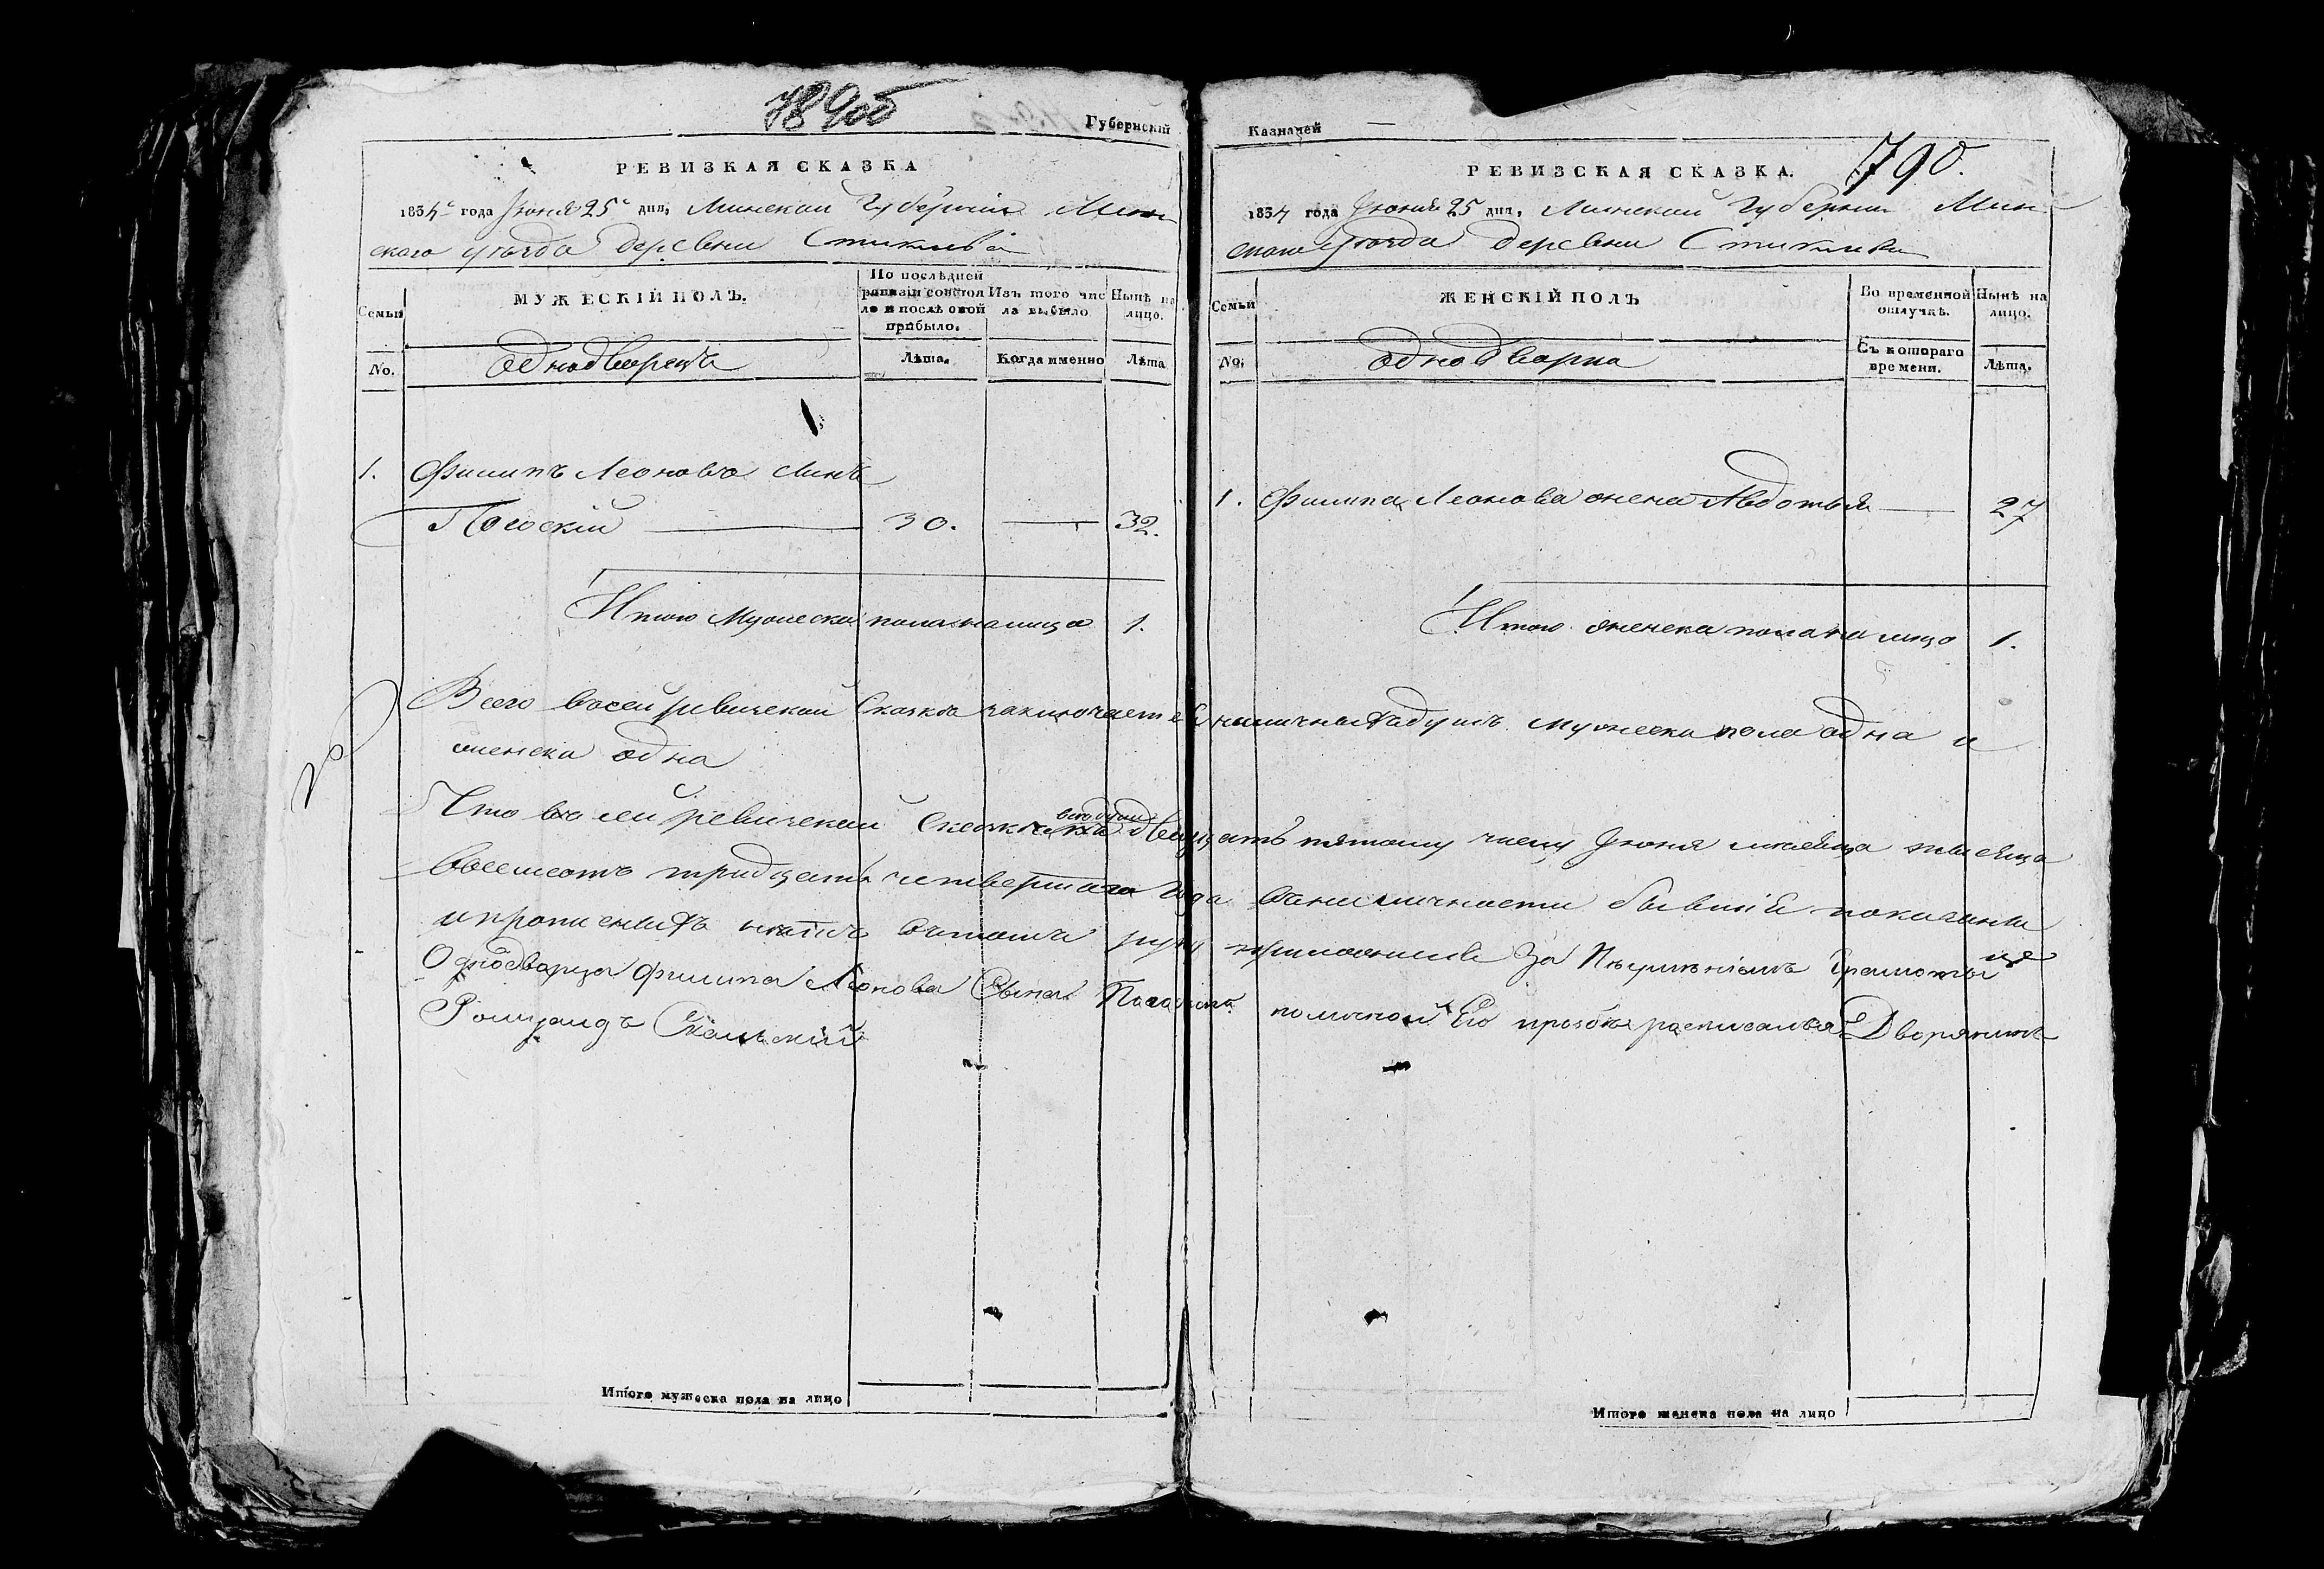 789об
Губернскій
РЕВИЗКАЯ СКАЗКА
1834 года Іюня 25 дня, Минской Губерніи Мин-
скаго уѣзда деревни
Семьи
МУЖЕСКІЙ ПОЛЪ.
По послѣдней ревизіи состояло и послѣ оной прибыло.
Изъ того числа выбыло
Нынѣ на лицо.
No.
Однодворецъ
Лѣта.
Когда именно
Лѣта
1. Филипъ Леоновъ сынъ
30. 32.
Итого Мужеска пола на лицо 1.
Казначей
790.
РЕВИЗСКАЯ СКАЗКА.
1834 года Іюня 25 дня, Минской Губерніи Мин-
скаго уѣзда деревни
Семьи
ЖЕНСКІЙ ПОЛЪ
Во временной отлучкѣ.
Нынѣ на лицо.
No.
Однодворка
Съ котораго времени.
Лѣта.
1. Филипа Леонова жена Авдотья 27
Итого женска пола на лицо 1.
Всего въ сей ревизской Сказкѣ заключается наличныхъ душъ мужеска пола одна и
женска одна
Что въ сей ревизской Сказкѣ всѣ души двадцать пятому числу Іюня мѣсяца тысяща
восемсотъ тридцать четвертаго года въ наличности бывшіе показаны
и прописныхъ нѣтъ въ томъ руку приложилъ За Неумѣніемъ Грамоты
Однодворца Филипа Леонова Сына по личной Его прозьбѣ расписался Дворянинъ
Итого мужеска пола на лицо
Итого женска пола на лицо